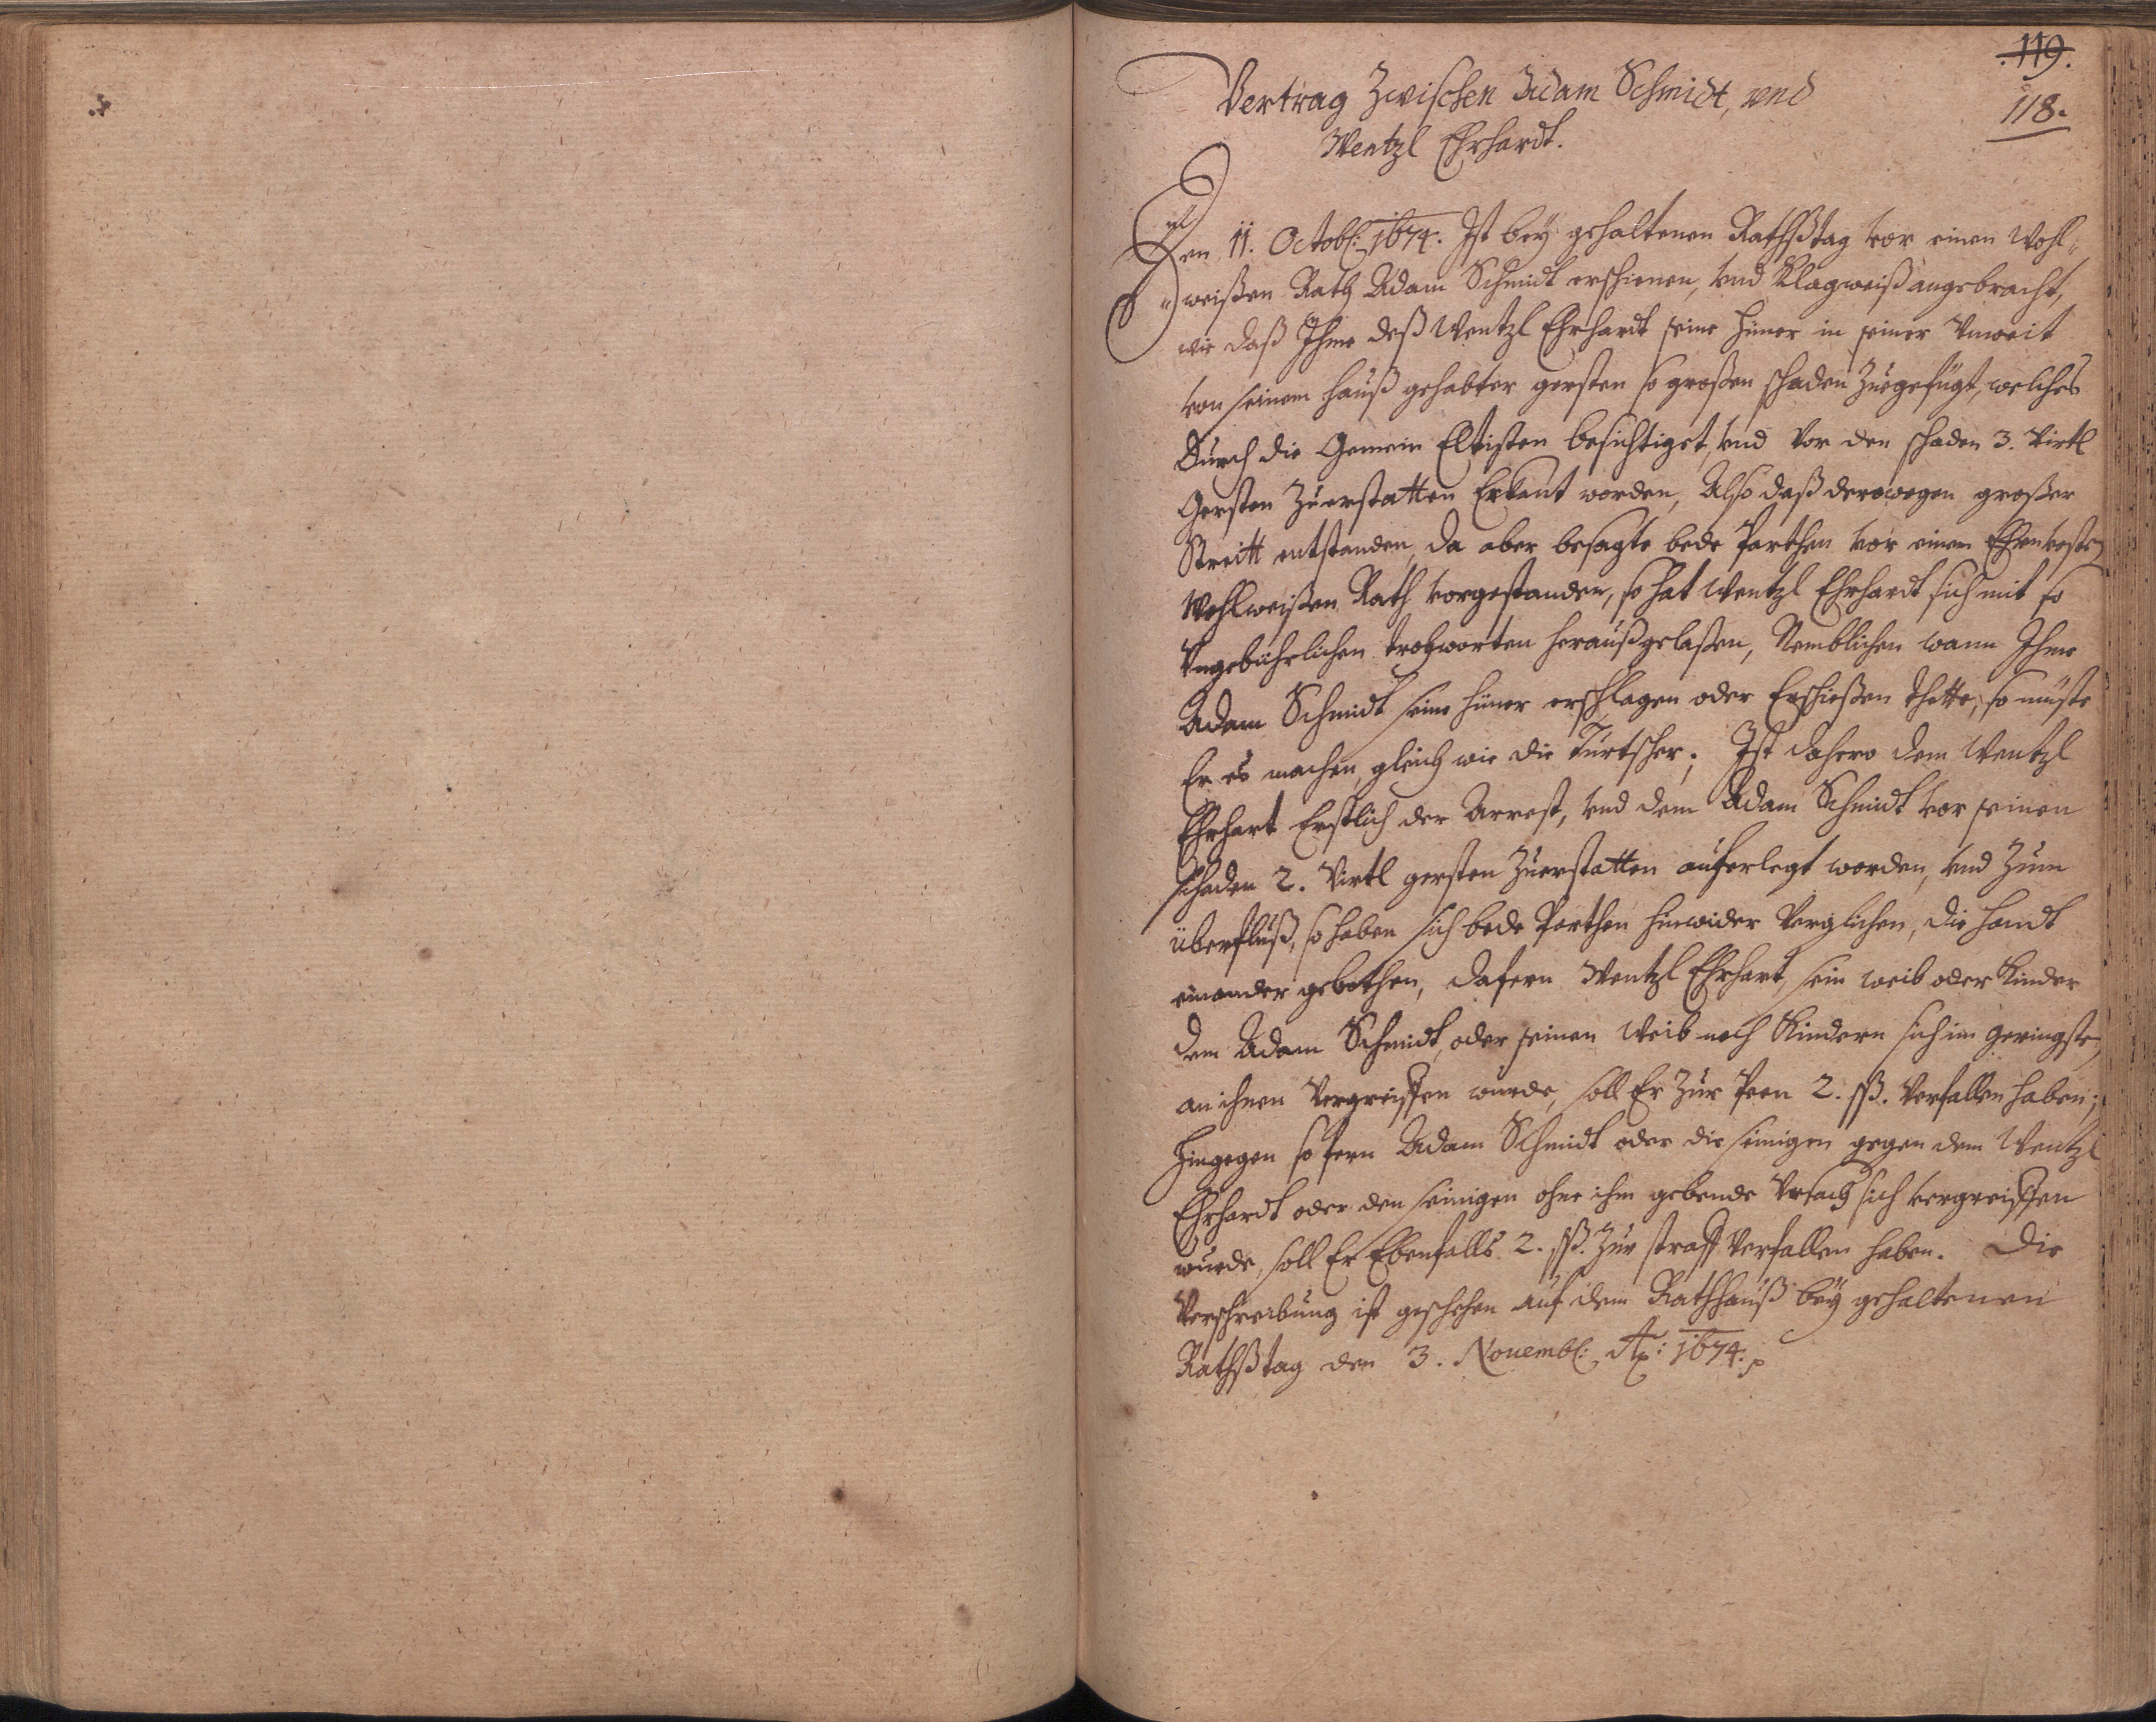 119.
118.
Vertrag Zwischen Adam Schmidt, vnd
Wentzl Ehrhardt.
Den 11. Octobl: 1674. Ist bey gehaltenen Rathßtag vor einen Wohl„
„weißen Rath Adam Schmidt erschienen, vnd Klagweiß angebracht,
wie daß Ihme deß Wentzl Ehrhardt seine hüner in seiner vnweit
von seinem hauß gehabter gersten so großen schaden Zuegefügt, welches
Durch die Gemein Eltisten besichtiget, vnd vor den schaden 3. Virtl
Gersten Zuerstatten Erkant worden, Also daß derowegen großer
Streitt entstanden, da aber besagte bede Parthen vor einem Ehrnvesten
Wohlweißen Rath vorgestanden, so hat Wentzl Ehrhardt sich mit so
Vngebührlichen trotzworten heraußgelaßen, Nemblichen wann Ihme
Adam Schmidt seine hüner erschlagen oder Erschießen thette, so müste
Er es machen, gleich wie die Türtscher; Ist dahero dem Wentzl
Ehrhart Erstlich der Arrest, vnd dem Adam Schmidt vor seinen
schaden 2. Virtl gersten Zuerstatten auferlegt worden, vnd Zum
überfluß, so haben sich bede Parthen hinwider Verglichen, die handt
einander gebothen, dafern Wentzl Ehrhart, sein weib oder Kinder
dem Adam Schmidt, oder seinen Weib noch Kindern sich im geringsten
an ihnen Vergreiffen wurde, soll Er Zur Peen 2. ßß. Verfallen haben;
Hingegen so fern Adam Schmidt oder die seinigen gegen dem Wentzl
Ehrhardt oder den seinigen ohne ihm gebende Vrsach sich vergreiffen
wurde, soll Er Ebenfalls 2. ßß. Zur straff Verfallen haben. Die
Verschreibung ist geschehen auf dem Rathhauß bey gehaltenen
Rathßtag den 3. Novembl: Ao: 1674.